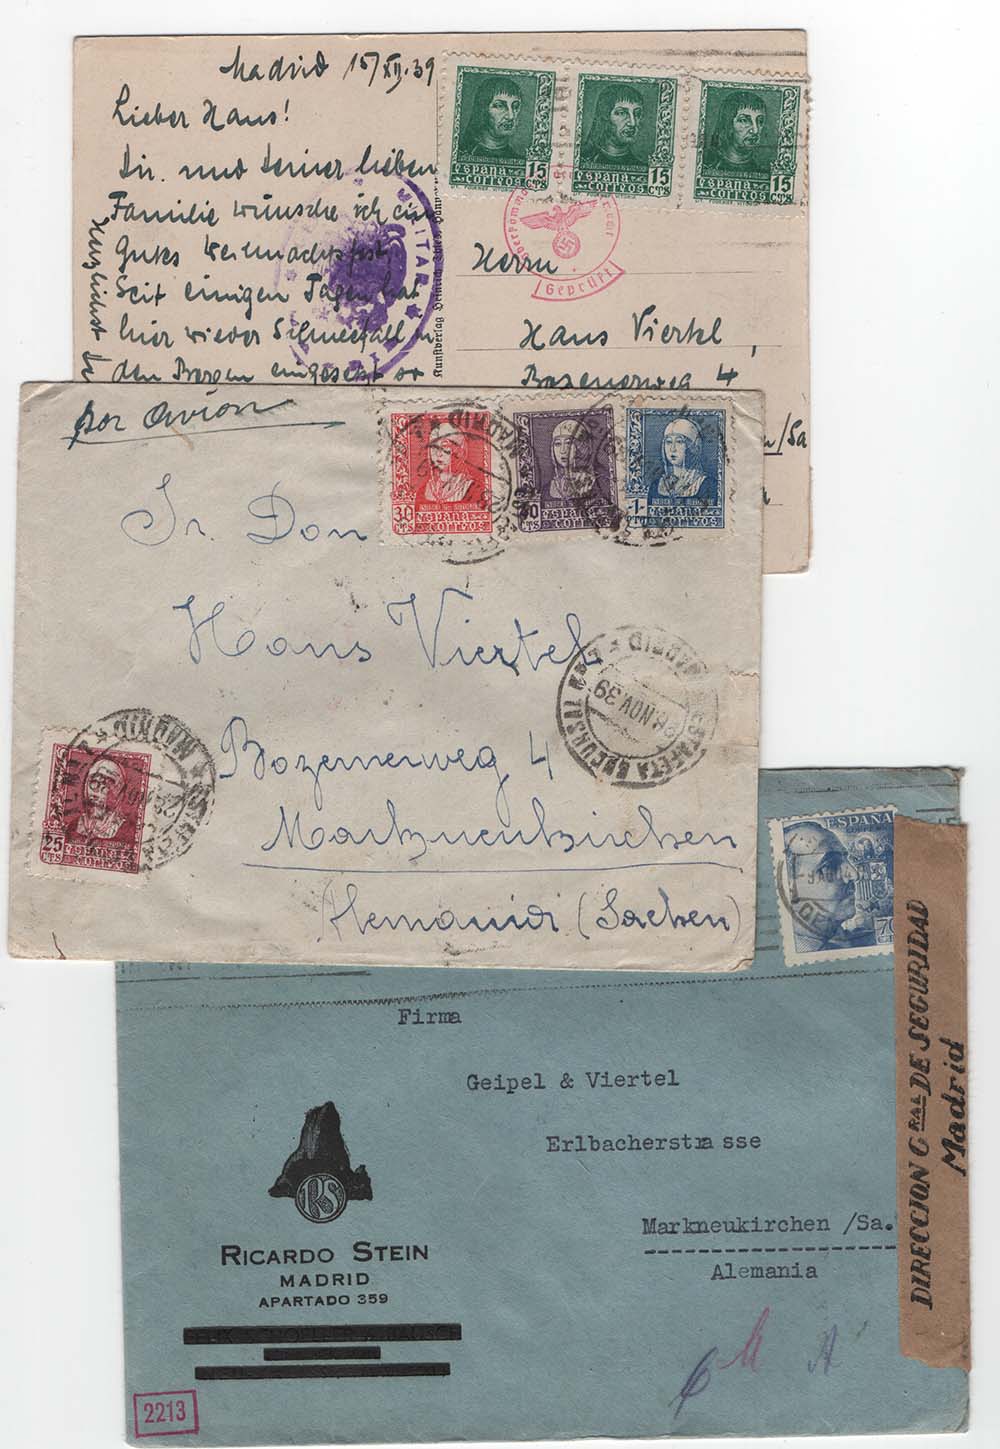 Madrid 15/XII.39
Lieber Hans!
Dir und deiner lieben
Familie wünsche ich ein
Gutes Weihnachtsfest
Seit einigen Tagen hat
hier wieder Schneefall in
den Bergen eingesetzt
Herzlichst
MILITAR
Kunstverlag Heinrich
15 ESPAÑA CTS
CORREOS
15 ESPAÑA CTS
CORREOS
15 ESPAÑA CTS
CORREOS
Geprüft
Herrn
Hans Viertel,
Bozenerweg 4
/Sa
por avion
30 ESPAÑA
CTS CORREOS
40 ESPAÑA
CTS CORREOS
1 ESPAÑA
CORREOS
MADRID
MADRID
Sr. Don
Hans Viertel
Bozenerweg 4
Markneukirchen
Alemania (Sachen)
ESTAFETA SUCURSAL MADRID
28 NOV 39
25
CTS
MADRID
ESPAÑA
CORREOS
70
DIRECCION GRAL DE SEGURIDAD
Madrid
Firma
Geipel & Viertel
Erlbacherstrasse
Markneukirchen /Sa.
Alemania
RS
RICARDO STEIN
MADRID
APARTADO 359
2213